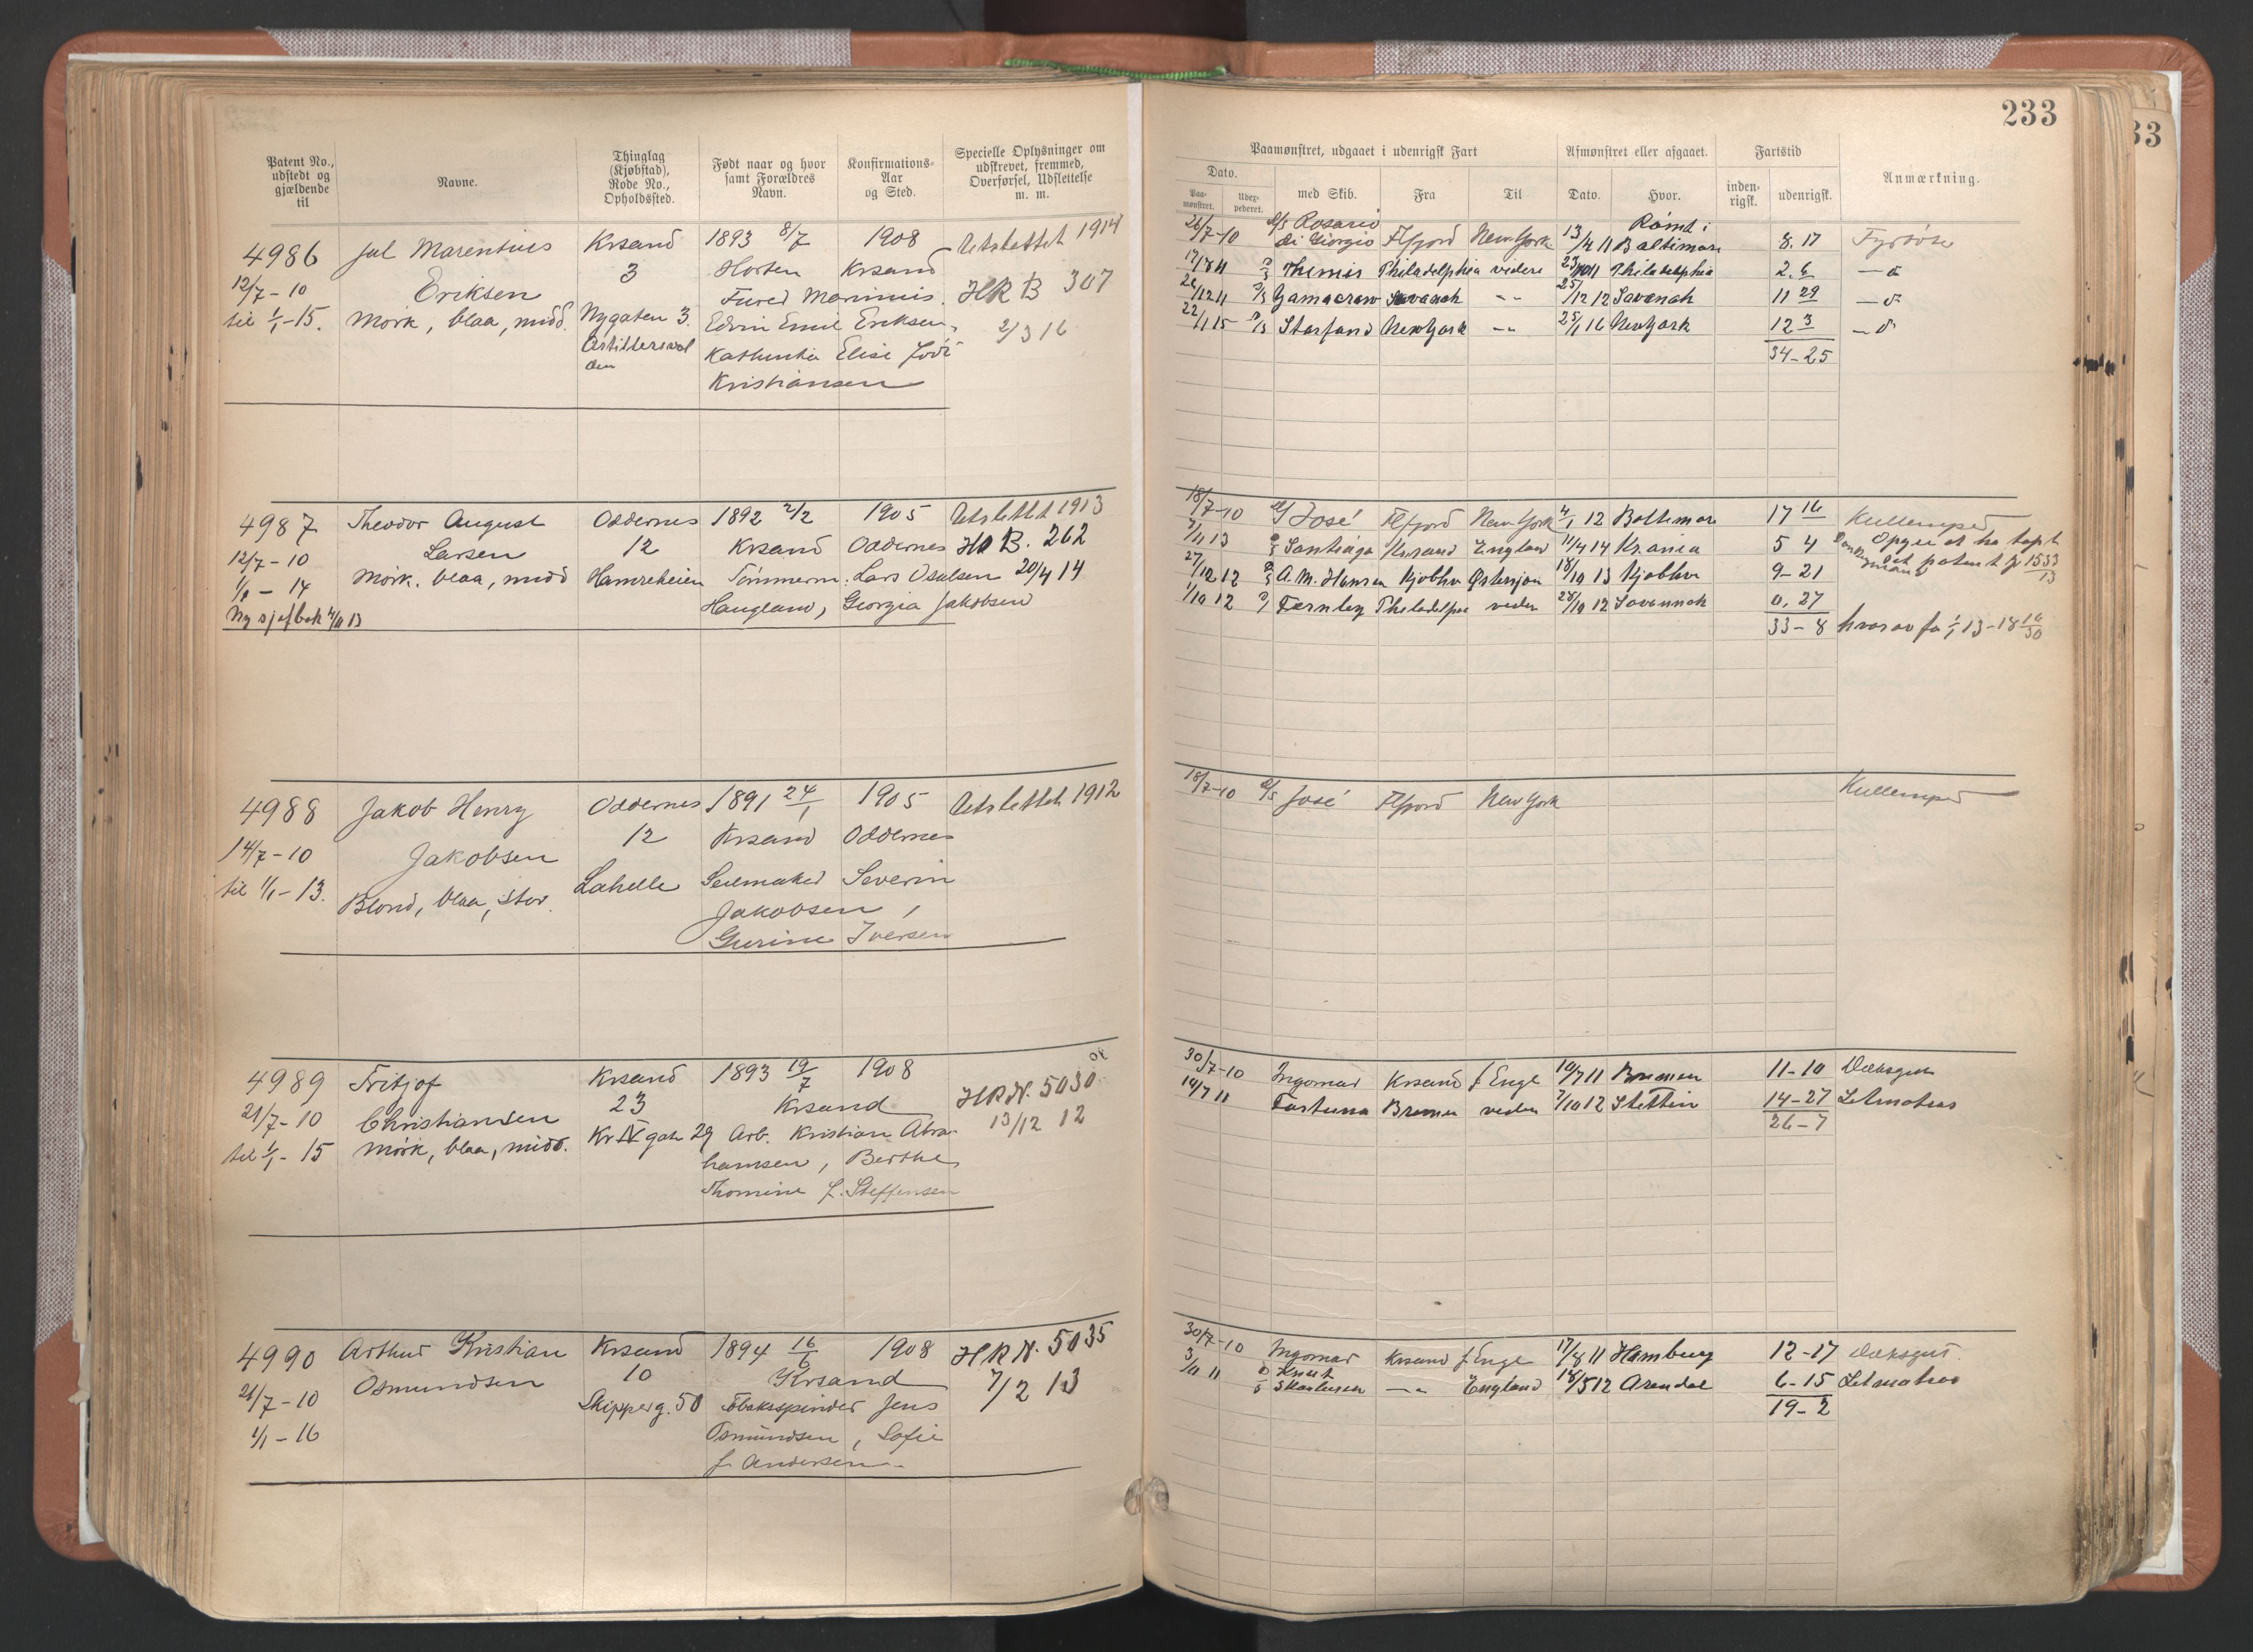 233
Patent No., udstedt og gjældende til
Navne.
Thinglag (Kjøbstad), Rode No., Opholdssted.
Født naar og hvor samt Forældres Navn.
Konfirmations-Aar og Sted.
Specielle Oplysninger om udskrevet, fremmed, Overførsel, Udslettelse m. m.
Paamønstret, udgaaet i udenrigsk Fart
Afmønstret eller afgaaet.
Fartstid
Anmærkning.
Dato.
Paa-mønstret.
Udex-pederet.
med Skib.
Fra
Til
Dato.
Hvor.
inden-rigsk.
udenrigsk.
4986 Jul Marentius Krsand 1893 8/7 1908 Utslettet 1914
12/7-10 Eriksen 3 Horten Krsand HR B 307
til 1/1-15. Mørk, blaa, midd. Nygaten 3. Edvin Emil Eriksen, 2/3 16
Kristiansen
26/7-10 Rosario di Giorgio Flfjord New York 13/4 11 Rømt i Baltimore 8. 17 Fyrbøter
Themis Philadelphia videre Philadelphia 2. 6 - d
Savanah - " - 25/12 12 Savanah 11 29 - d
22/1 15 New York - " - 25/1 16 New York 12 3 - d
34-25
4987 Theodor August Oddernes 1892 2/2 1905 Utslettet 1913
12/7-10 Larsen 12 Krsand Oddernes HR B. 262
1/1-14 Mørk, blaa, midd Hamreheien Tømmerm. Lars Osulsen 20/4 14
Haugland, Georgia Jakobsen
Ny sjøfbok
18/7-10 José Flfjord New York 4/1 12 Baltimore 17 16 Kullemper
Santiago Krsand England 11/4 14 Kr.ania 5 4
27/12 12 A. M. Hansen Kjøbhvn Østersjøen 18/10 13 Kjøbhvn 9-21
1/10 12 Fernley Philadelphia videre 28/10 12 Savannah 0. 27
33-8
4988 Jakob Henry Oddernes 1891 24/1 1905 Utslettet 1912
14/7-10 Jakobsen 12 Krsand Oddernes
til 1/1-13. Blond, blaa, stor. Lahelle Seilmaker Severin
Jakobsen,
Gurine Iversen
18/7-10 José Flfjord New York Kullemper
4989 Fritjof Krsand 1893 19/7 1908
21/7-10 Christiansen 23 Krsand HR N. 5030
til 1/1-15 Mørk, blaa, midd. Kr IV gate 29 Arb. Kristian Abra- 13/12 12
hamsen, Berthe
Thomine f. Steffensen
30/7-10 Ingomar Krsand f Engl 10/7 11 Bremen 11-10 Dæksgut
14/7 11 Fortuna Bremen videre 7/10 12 Stettin 14-27 Letmatros
26-7
4990 Arthur Kristian Krsand 1894 16/6 1908 HR N. 5035
21/7-10 Osmundsen 10 Krsand 7/2 13
1/1-16 Skipperg. 50 Tobaksspinder Jens
Osmundsen, Sofie
f. Andersen
30/7-10 Ingomar Krsand f Engl 17/8 11 Hamburg 12-17 Dæksgut.
3/11 11 Knut Skaaluren - " - England 18/5 12 Arendal 6-15 Letmatros
19-2